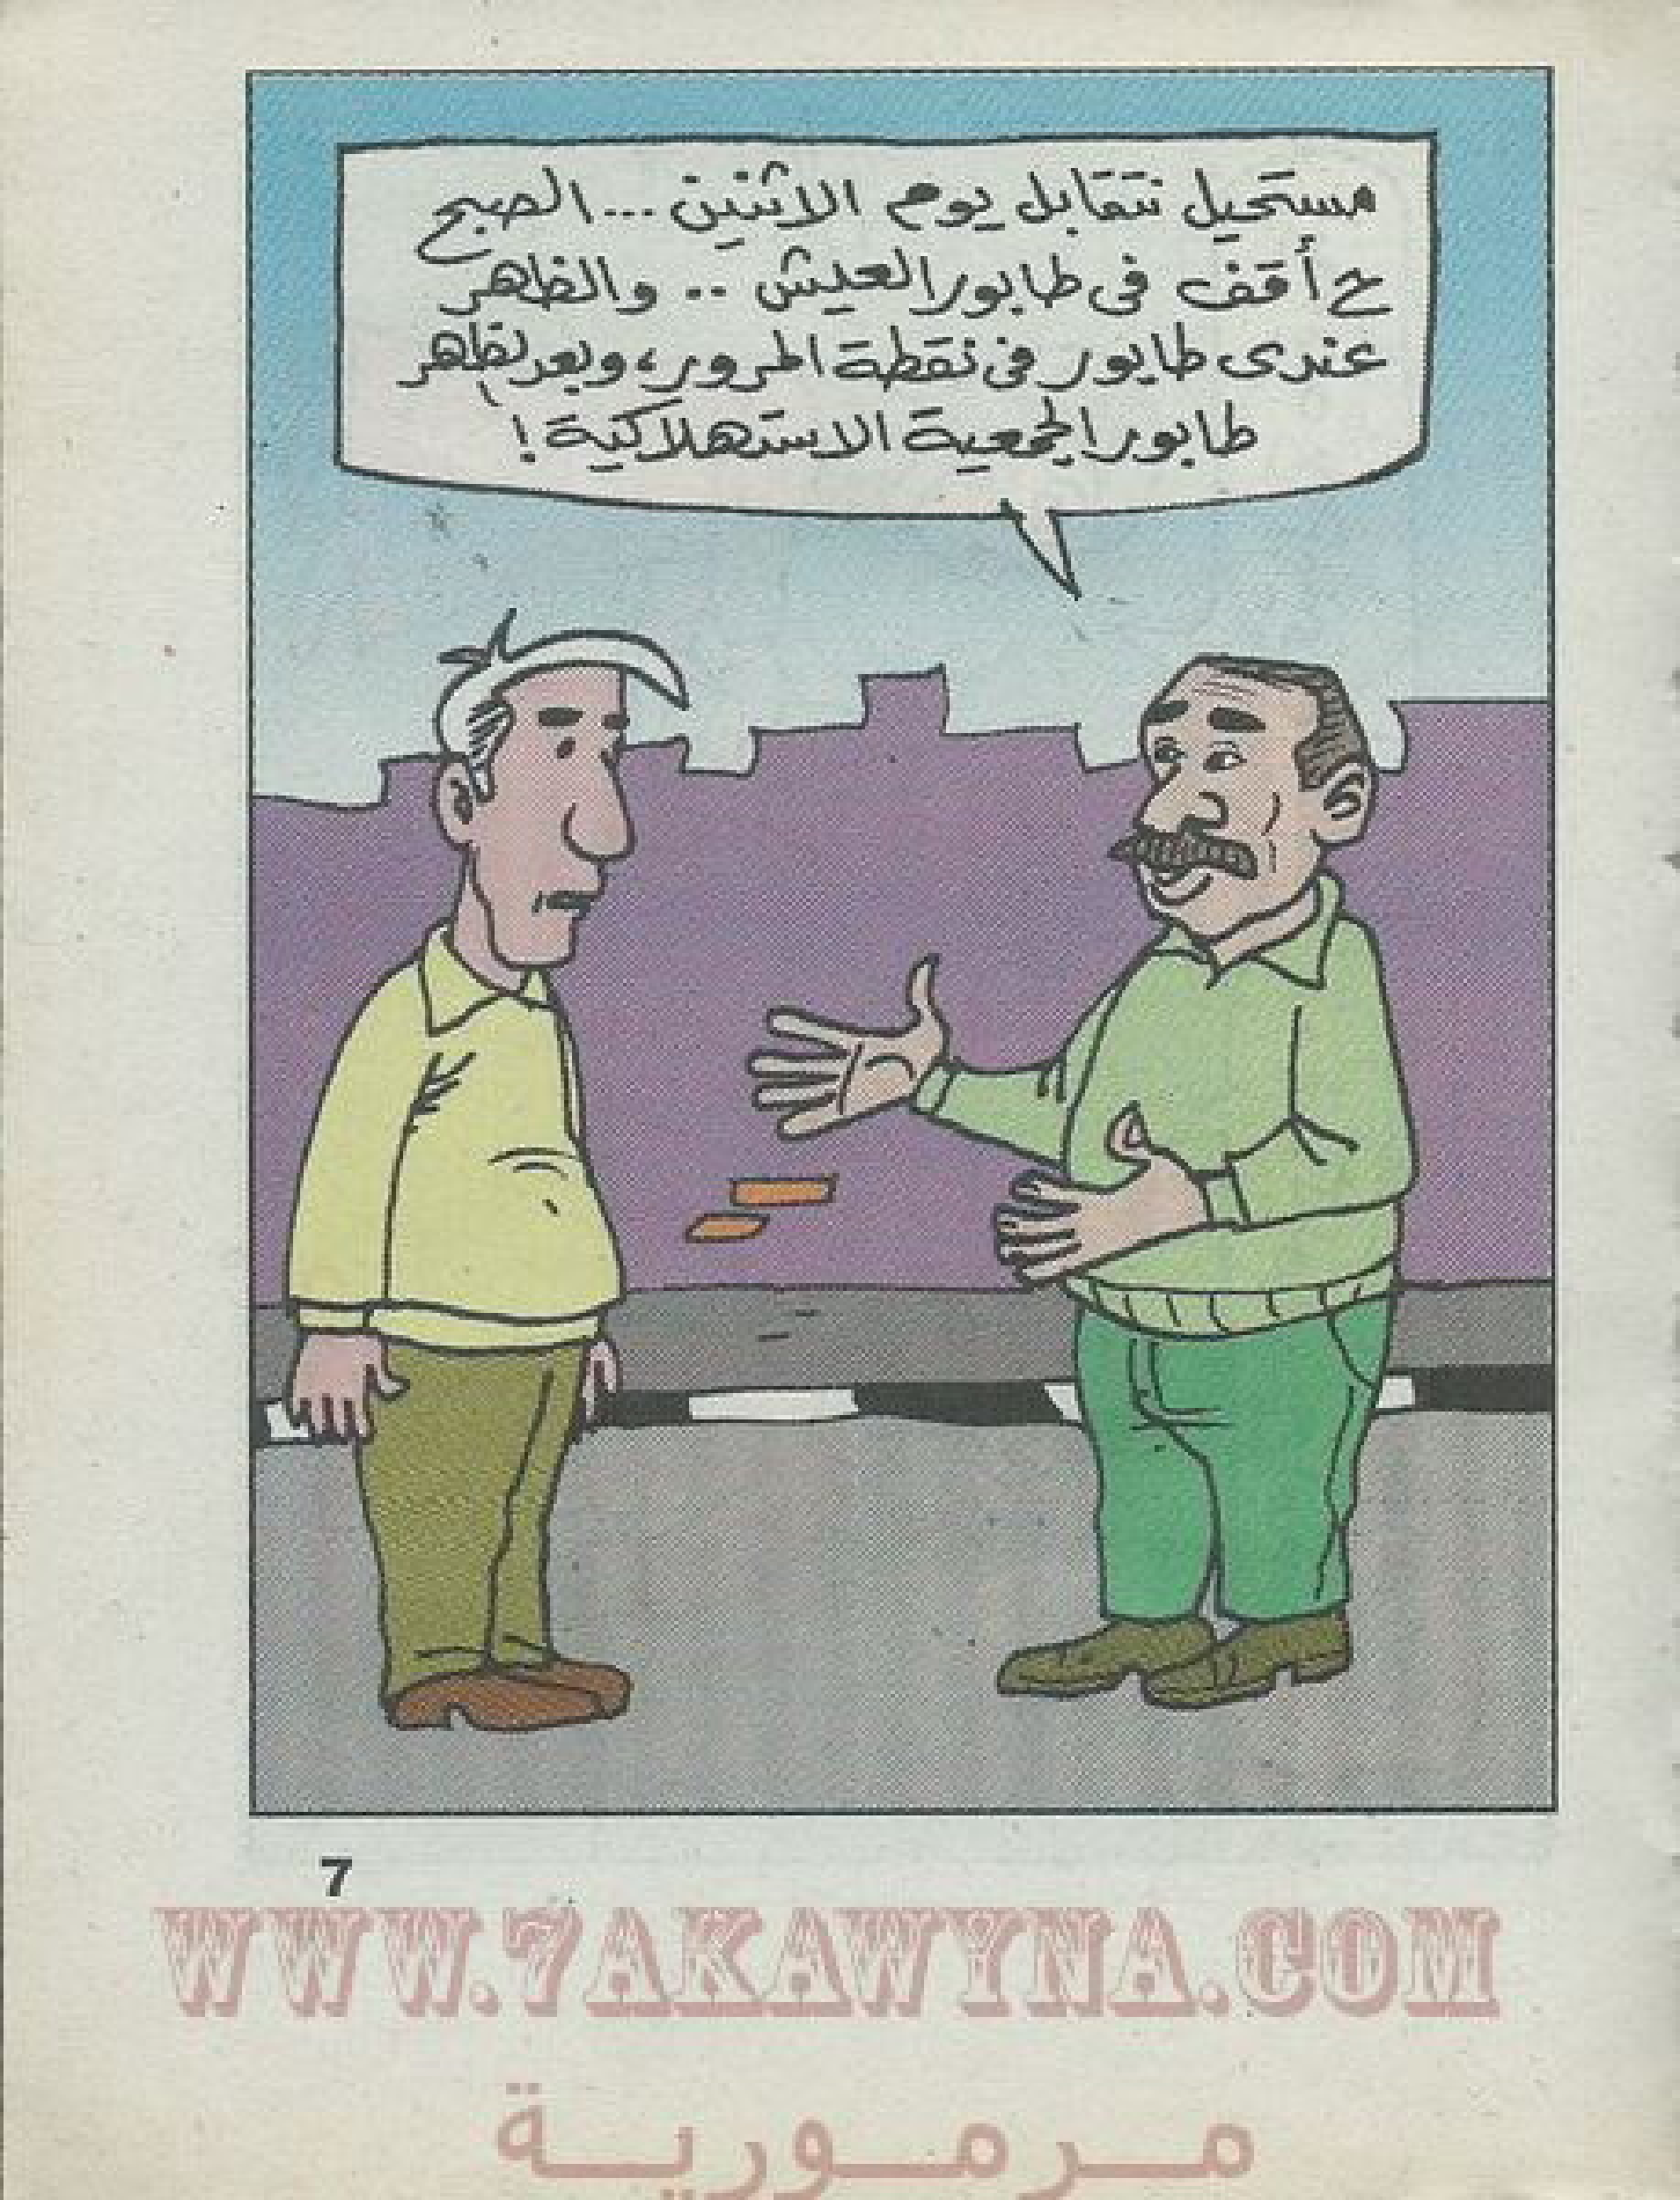 مستحيل نتقابل يوم الاثنين ... الصبح
ح أقف فى طابور العيش .. والظاهر
عندى طابور فى نقطة المرور، وبعد لظاهر
طابور الجمعية الاستهلاكية!
7
WWW.7AKAWYNA.COM
مرمورية